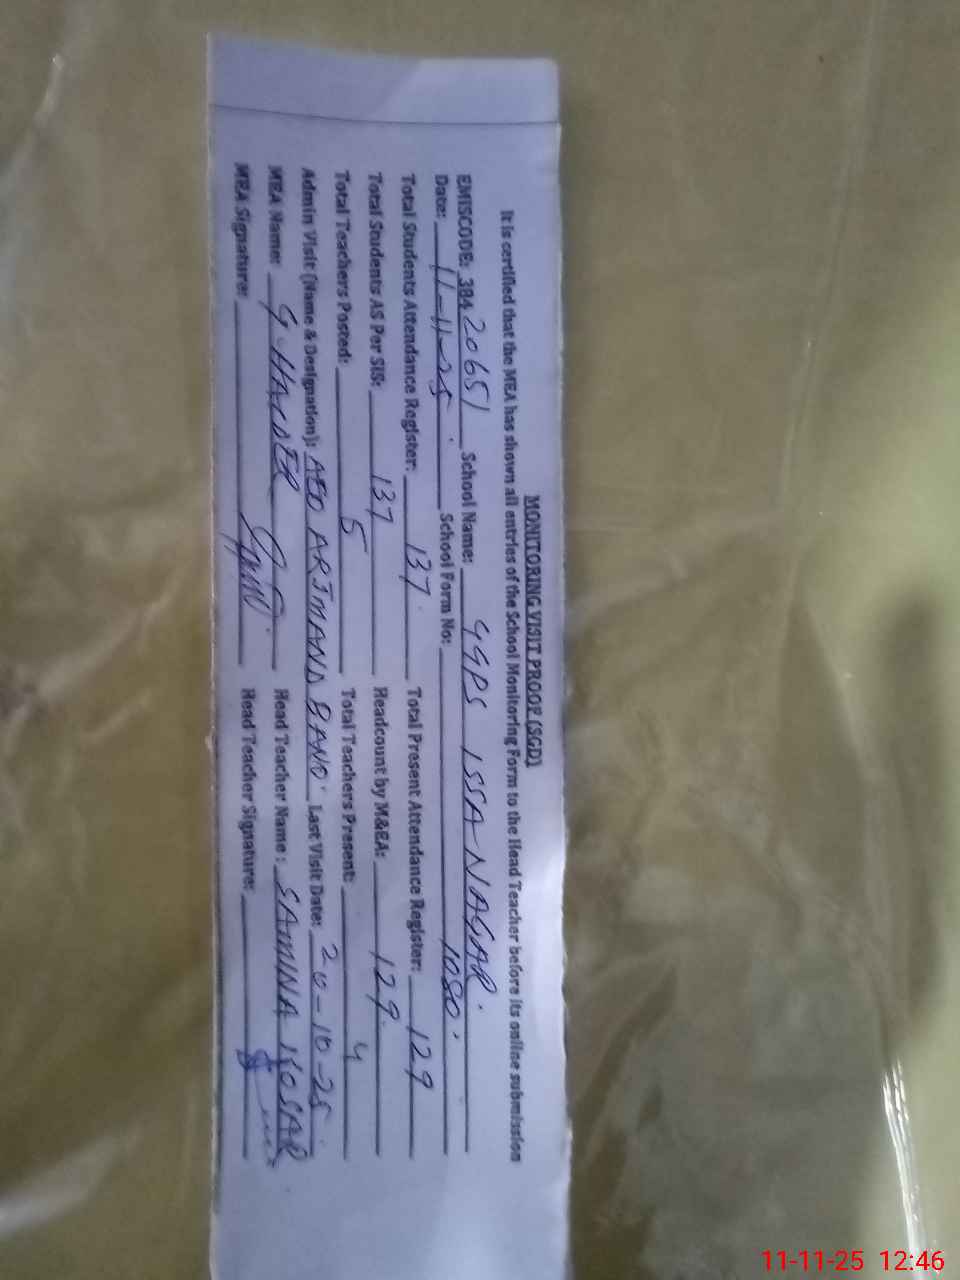 MONITORING VISIT PROOF (SGD)
It is certified that the MEA has shown all entries of the School Monitoring Form to the Head Teacher before its online submission
EMISCODE: 38420651 School Name: GGPS ISSA NAGAR.
Date: 11-11-25 School Form No: 1080.
Total Students Attendance Register: 137. Total Present Attendance Register: 129
Total Students AS Per SIS: 137 Headcount by M&EA: 129.
Total Teachers Posted: 5 Total Teachers Present: 4
Admin Visit (Name & Designation): AEO ARJMAND BANO. Last Visit Date: 20-10-25.
MEA Name: G HAIDER Head Teacher Name: SAMINA KOSAR
MEA Signature: Head Teacher Signature:
11-11-25 12:46